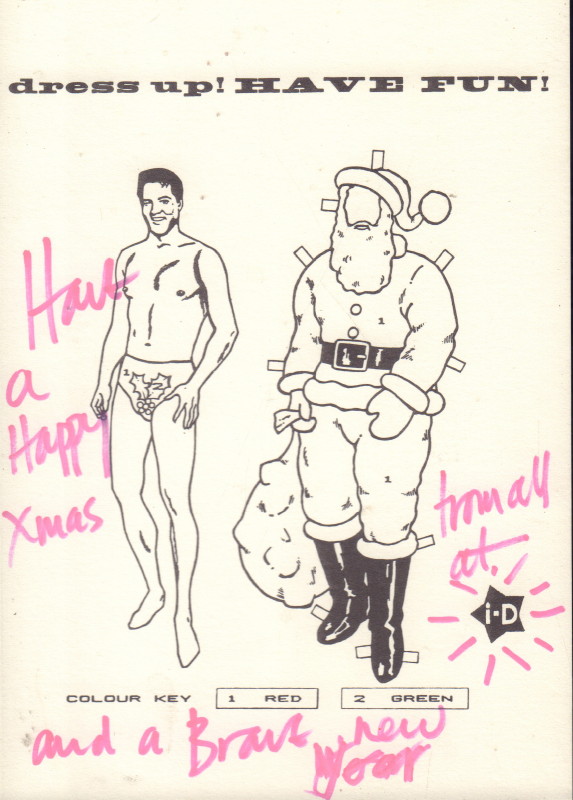 dress up! HAVE FUN!
Have
a
Happy
Xmas
from all
at.
i-D
1
1
1
2
COLOUR KEY 1 RED 2 GREEN
and a Brave new
year